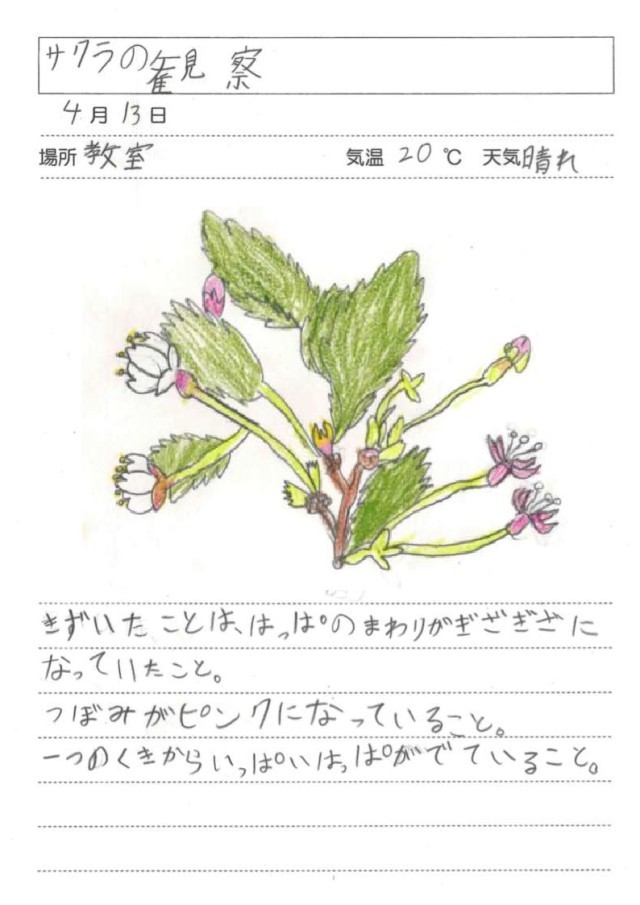 サクラの観察
4月13日
場所 教室 気温 20 ℃ 天気 晴れ
きずいたことは、はっぱのまわりがぎざぎざに
なっていたこと。
つぼみがピンクになっていること。
一つのくきからいっぱいはっぱがでていること。